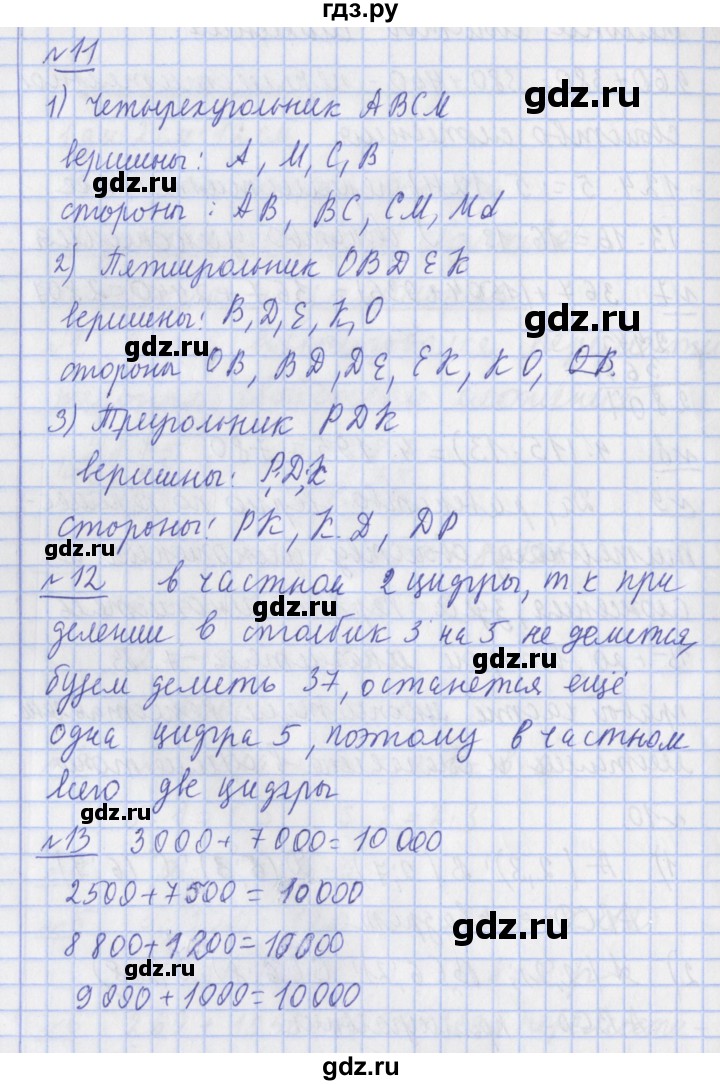 гдз.ру
№11
1) Четырехугольник ABCM
вершины: A, M, C, B
стороны: AB, BC, CM, Md
2) Пятиугольник OBDEK
вершины: B, D, E, K, O
стороны OB, BD, DE, EK, KO, OB.
3) Треугольник PDK
вершины: P, D, K
стороны: PK, KD, DP
№12 в частной 2 цифры, т к при
делении в столбик 3 на 5 не делится,
будем делить 37, останется ещё
одна цифра 5, поэтому в частном
всего две цифры
№13 3000 + 7000 = 10 000
2500 + 7500 = 10000
8 800 + 1 200 = 10000
9 000 + 1000 = 10000
gdz.ru
gdz.ru
gdz.ru
gdz.ru
gdz.ru
gdz.ru
gdz.ru
gdz.ru
gdz.ru
gdz.ru
gdz.ru
gdz.ru
gdz.ru